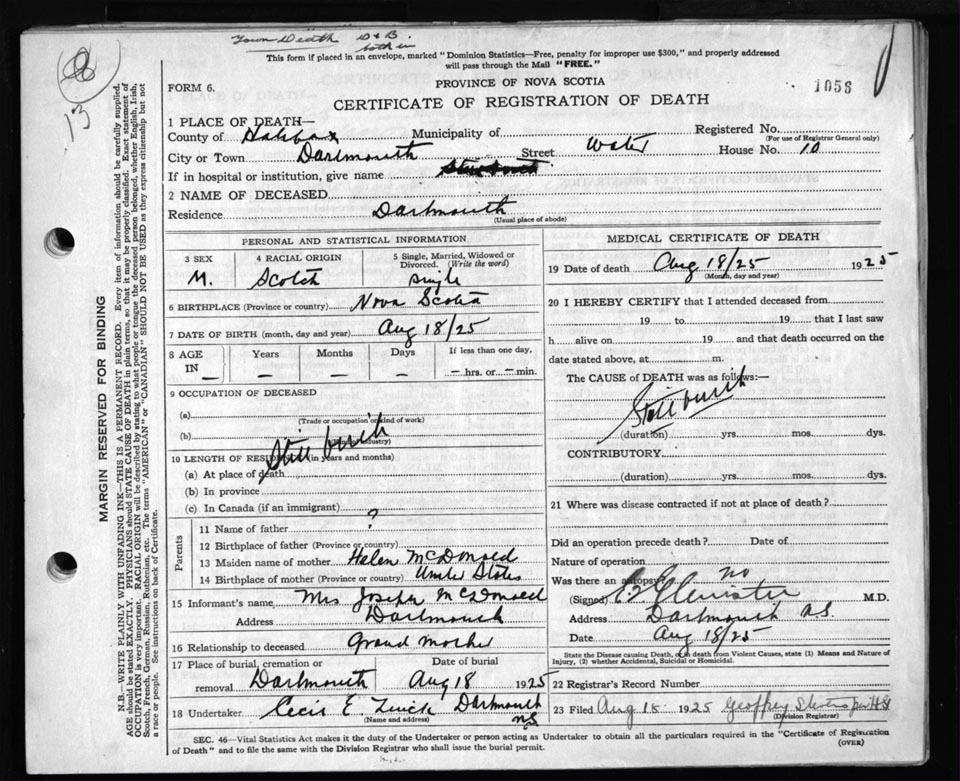 Town Death D & B.
This form if placed in an envelope, marked "Dominion Statistics—Free, penalty for improper use $300," and properly addressed
will pass through the Mail "FREE."
8
13
FORM 6.
PROVINCE OF NOVA SCOTIA
1056
CERTIFICATE OF REGISTRATION OF DEATH
1 PLACE OF DEATH—
County of Halifax Municipality of Registered No.
(For use of Registrar General only)
City or Town Dartmouth Street Water House No. 10
If in hospital or institution, give name
2 NAME OF DECEASED
Residence Dartmouth
(Usual place of abode)
MARGIN RESERVED FOR BINDING
N.B.—WRITE PLAINLY WITH UNFADING INK—THIS IS A PERMANENT RECORD. Every item of information should be carefully supplied.
AGE should be stated EXACTLY. PHYSICIANS should STATE CAUSE OF DEATH in plain terms, so that it may be properly classified. Exact statement of
OCCUPATION is very important. RACIAL ORIGIN will be described by stating to what people or tongue the deceased person belonged, whether English, Irish,
Scotch, French, German, Russian, Ruthenian, etc. The terms "AMERICAN" or "CANADIAN" SHOULD NOT BE USED as they express citizenship but not
a race or people. See instructions on back of Certificate.
PERSONAL AND STATISTICAL INFORMATION
3 SEX 4 RACIAL ORIGIN 5 Single, Married, Widowed or
Divorced. (Write the word)
M. Scotch single
6 BIRTHPLACE (Province or country) Nova Scotia
7 DATE OF BIRTH (month, day and year) Aug 18/25
8 AGE Years Months Days If less than one day,
IN — — — — — hrs. or — min.
9 OCCUPATION OF DECEASED
(a)
(Trade or occupation or kind of work)
(b)
(Industry)
Still birth
10 LENGTH OF RESIDENCE (in years and months)
(a) At place of death
(b) In province
(c) In Canada (if an immigrant)
Parents
11 Name of father ?
12 Birthplace of father (Province or country)
13 Maiden name of mother Helen McDonald
14 Birthplace of mother (Province or country) United States
15 Informant's name Mrs Joseph McDonald
Address Dartmouth
16 Relationship to deceased Grand Mother
17 Place of burial, cremation or Date of burial
removal Dartmouth Aug 18 1925
18 Undertaker Cecil E. Dartmouth
(Name and address) N.S.
MEDICAL CERTIFICATE OF DEATH
19 Date of death Aug 18/25 1925
(Month, day and year)
20 I HEREBY CERTIFY that I attended deceased from
19 to 19 that I last saw
h alive on 19 and that death occurred on the
date stated above, at m.
The CAUSE of DEATH was as follows:—
Still birth
(duration) yrs. mos. dys.
CONTRIBUTORY
(duration) yrs. mos. dys.
21 Where was disease contracted if not at place of death?
Did an operation precede death? Date of
Nature of operation
Was there an autopsy? no
(Signed) M.D.
Address Dartmouth N.S.
Date Aug 18/25
State the Disease causing Death, or, in death from Violent Causes, state (1) Means and Nature of
Injury, (2) whether Accidental, Suicidal or Homicidal.
22 Registrar's Record Number
23 Filed Aug 18 1925 Geoffrey Stevens per HS
(Division Registrar)
SEC. 46—Vital Statistics Act makes it the duty of the Undertaker or person acting as Undertaker to obtain all the particulars required in the "Certificate of Registration
of Death" and to file the same with the Division Registrar who shall issue the burial permit. (OVER)